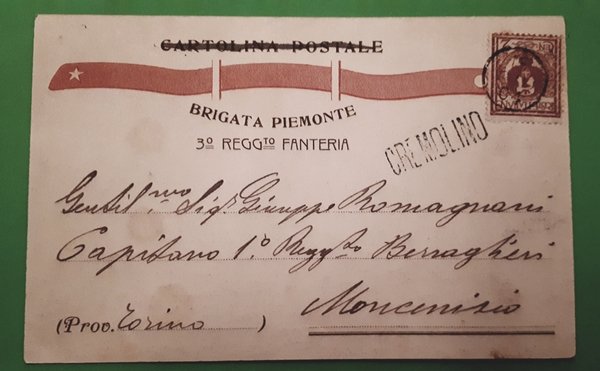 CARTOLINA POSTALE
BRIGATA PIEMONTE
3º REGGTO FANTERIA
CREMOLINO
Gentil.mo Sig. Giuseppe Romagnani
Capitano 1.º Reggto Bersaglieri
Moncenisio
(Prov. Torino )